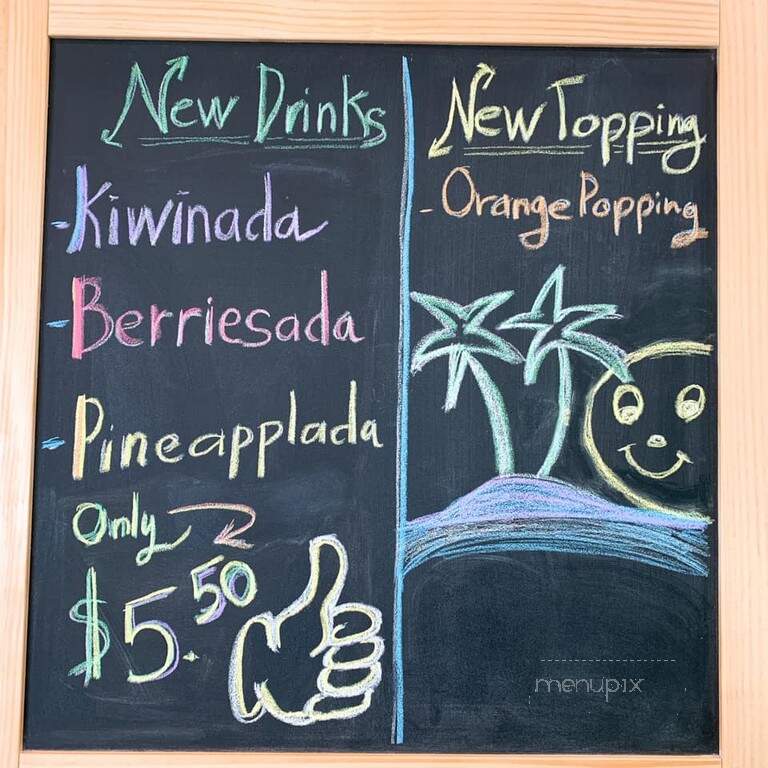 New Drinks
- Kiwinada
- Berriesada
- Pineapplada
Only
$5.50
New Topping
- Orange Popping
menupix